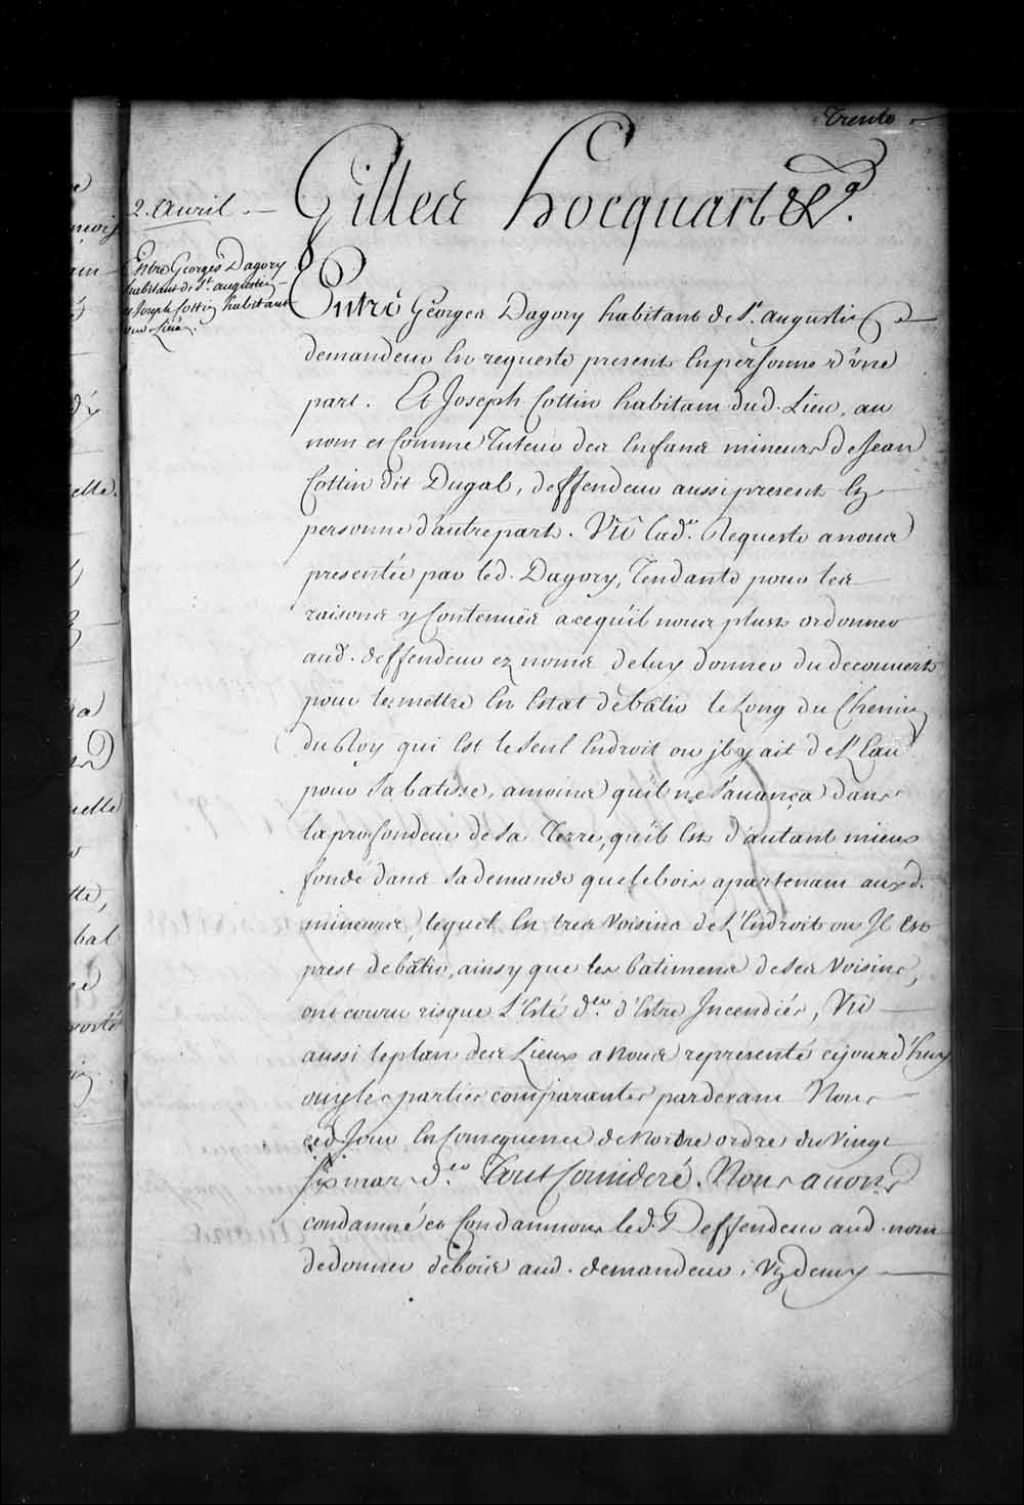 Trente
Gilles hocquart &c.ª
2. Avril.
Entre Georges Dagory
habitant de St. augustin
et Joseph Cottin habitant
aud. Lieu.
Entre Georges Dagory habitant de St. augustin
demandeur En requeste present En personne d'vne
part. Et Joseph Cottin habitant dud. Lieu, au
nom et Comme Tuteur des Enfans mineurs de Jean
Cottin dit Dugal, deffendeur aussi present En
personne d'autre part. Vu Lad.e Requeste a nous
presentée par led. Dagory, Tendante pour les
raisons y Contenuës a ce qu'il nous plust ordonner
aud. deffendeur ez noms de luy donner du decouvert
pour le mettre En Estat de batir le Long du Chemin
du Roy qui Est le seul Endroit ou jl y ait de l'Eau
pour sa batisse, amoins qu'il ne s'auança dans
la profondeur de sa Terre, qu'il Est d'autant mieux
fondé dans sa demande que le bois apartenant auxd.
mineurs, lequel En tres voisins de L'Endroit ou Il Est
prest de batir, ainsy que les batimens de ses Voisins,
ont couru risque L'Eté d.er d'Estre Incendiés, Vu
aussi le plan des Lieux a nous representé cejourd'huy
ouy les parties comparantes pardevant Nous
ced. Jour En Consequence de Nostre ordre du Vingt
six mars d.er Tout Consideré. Nous avons
condamné et Condamnons led. Deffendeur aud. nom
de donner de bois aud. demandeur, Vz deux